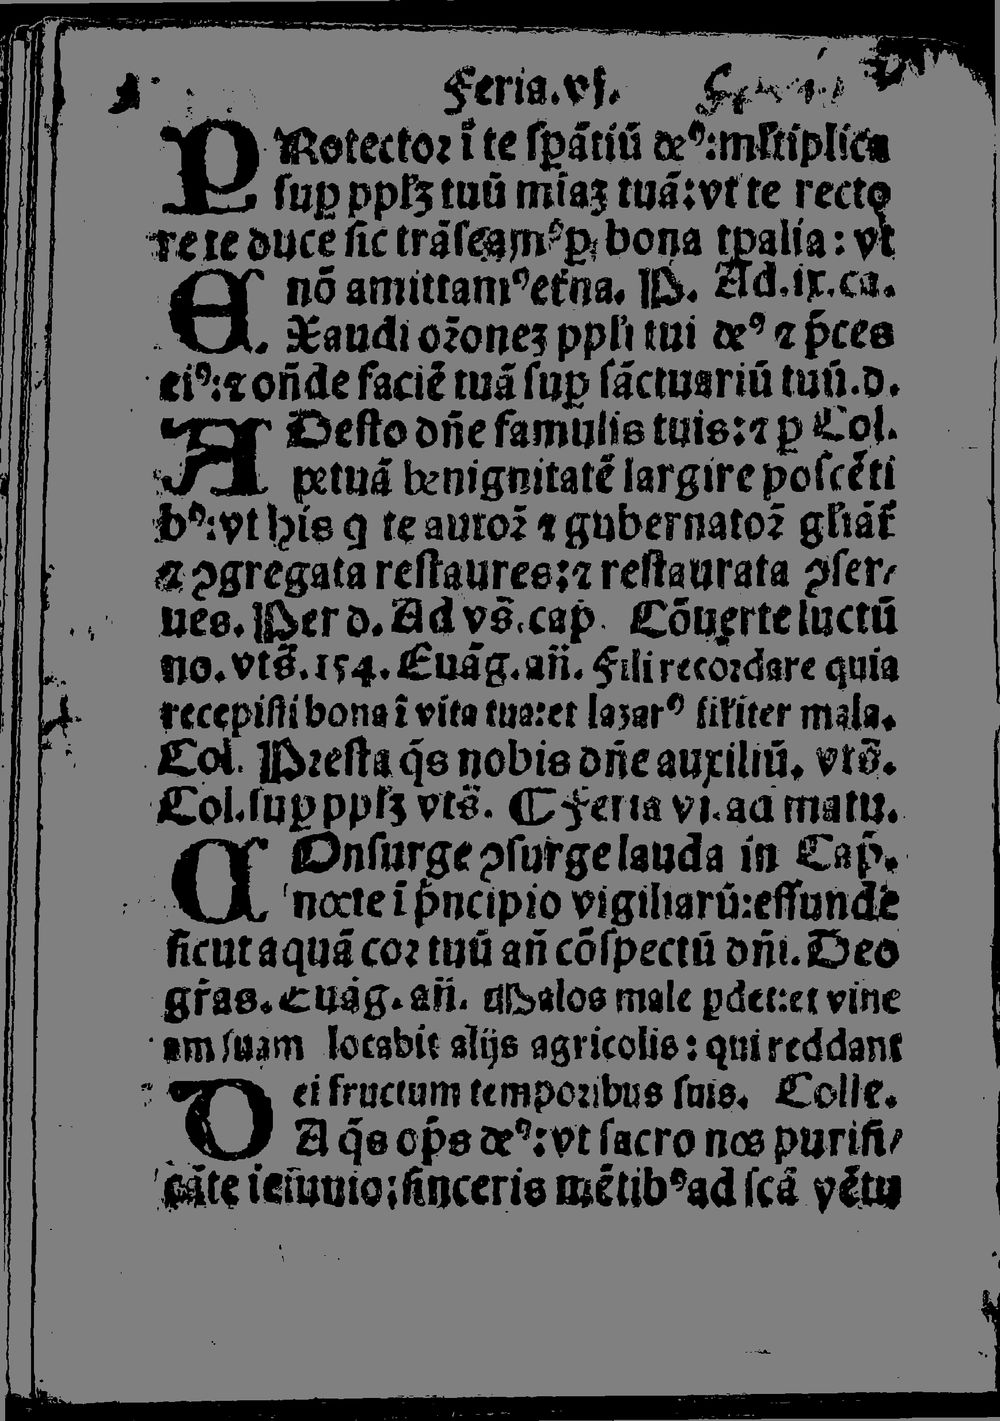 Feria.vj.
PRotector ī te sꝑātiū deꝰ:mĺtiplica
suꝑ ppĺꝫ tuū mīaꝫ tuā:vt te recto
re te duce sic trāseamꝰ ꝑ bona tꝑalia: vt
nō amittamꝰ etna. P. Ad.ix.ca.
EXaudi or̄oneꝫ ppĺi tui deꝰ ⁊ p̄ces
eiꝰ:⁊ on̄de faciē tuā suꝑ sāctuariū tuū.d.
ADesto dn̄e famulis tuis:⁊ ꝑ Col.
petuā benignitatē largire poscēti
bꝰ:vt his q te autor̄ ⁊ gubernator̄ gĺiāt
⁊ ꝯgregata restaures:⁊ restaurata ꝯser/
ues. Per d. Ad vs̄.cap. Cōuerte luctū
no. vts̄.154. Euāg.an̄. Fili recordare quia
recepisti bona ī vita tua:et lazarꝰ siĺiter mala.
Col. Presta q̄s nobis dn̄e auxiliū. vts̄.
Col.suꝑ ppĺꝫ vts̄. ¶ Feria vj.ad matu.
COnsurge ꝯsurge lauda in Cap̄.
nocte ī p̄ncipio vigiliarū:effunde
sicut aquā cor tuū an̄ cōspectū dn̄i. Deo
gr̄as. Euāg. an̄. Malos male ꝑdet:et vine
am suam locabit alijs agricolis: qui reddant
ei fructum temporibus suis. Colle.
DA q̄s op̄s deꝰ:vt sacro nos purifi/
cāte ieiunio:sinceris mētibꝰ ad scā vētu